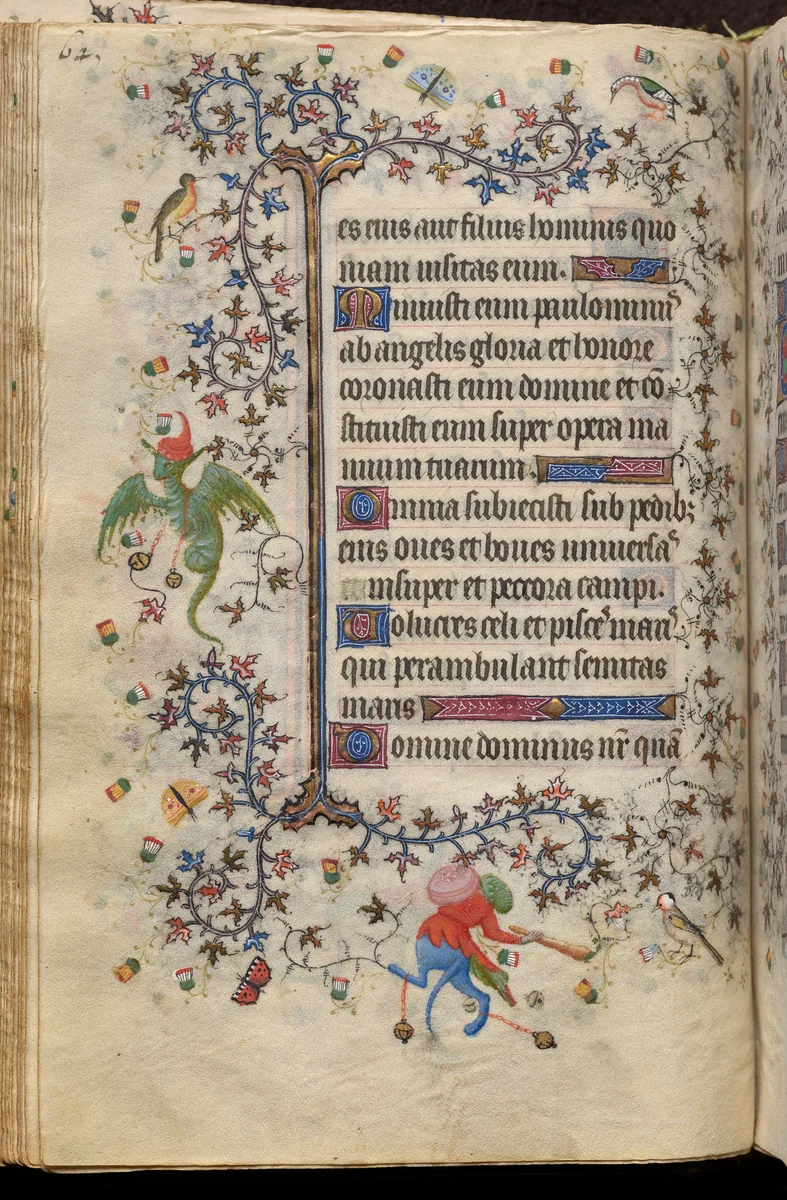 62.
es eius aut filius hominis quo
niam visitas eum.
Minuisti eum paulominus
ab angelis gloria et honore
coronasti eum domine et cō
stituisti eum super opera ma
nuum tuarum.
Omnia subiecisti sub pedib;
eius oues et boues uniuersas
insuper et peccora campi.
Uolucres celi et pisces maris
qui perambulant semitas
maris
Domine dominus nr̄ quā